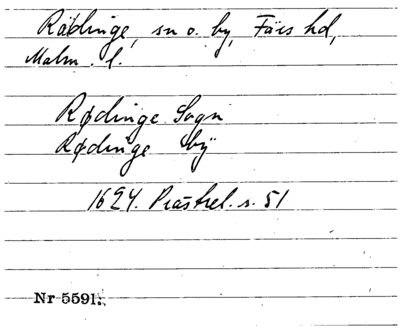 Röddinge, sn o. by, Färs hd,
Malm. l.
Rødinge Sogn
Rødinge bÿ
1624. Prästrel. s. 51
Nr 5591.